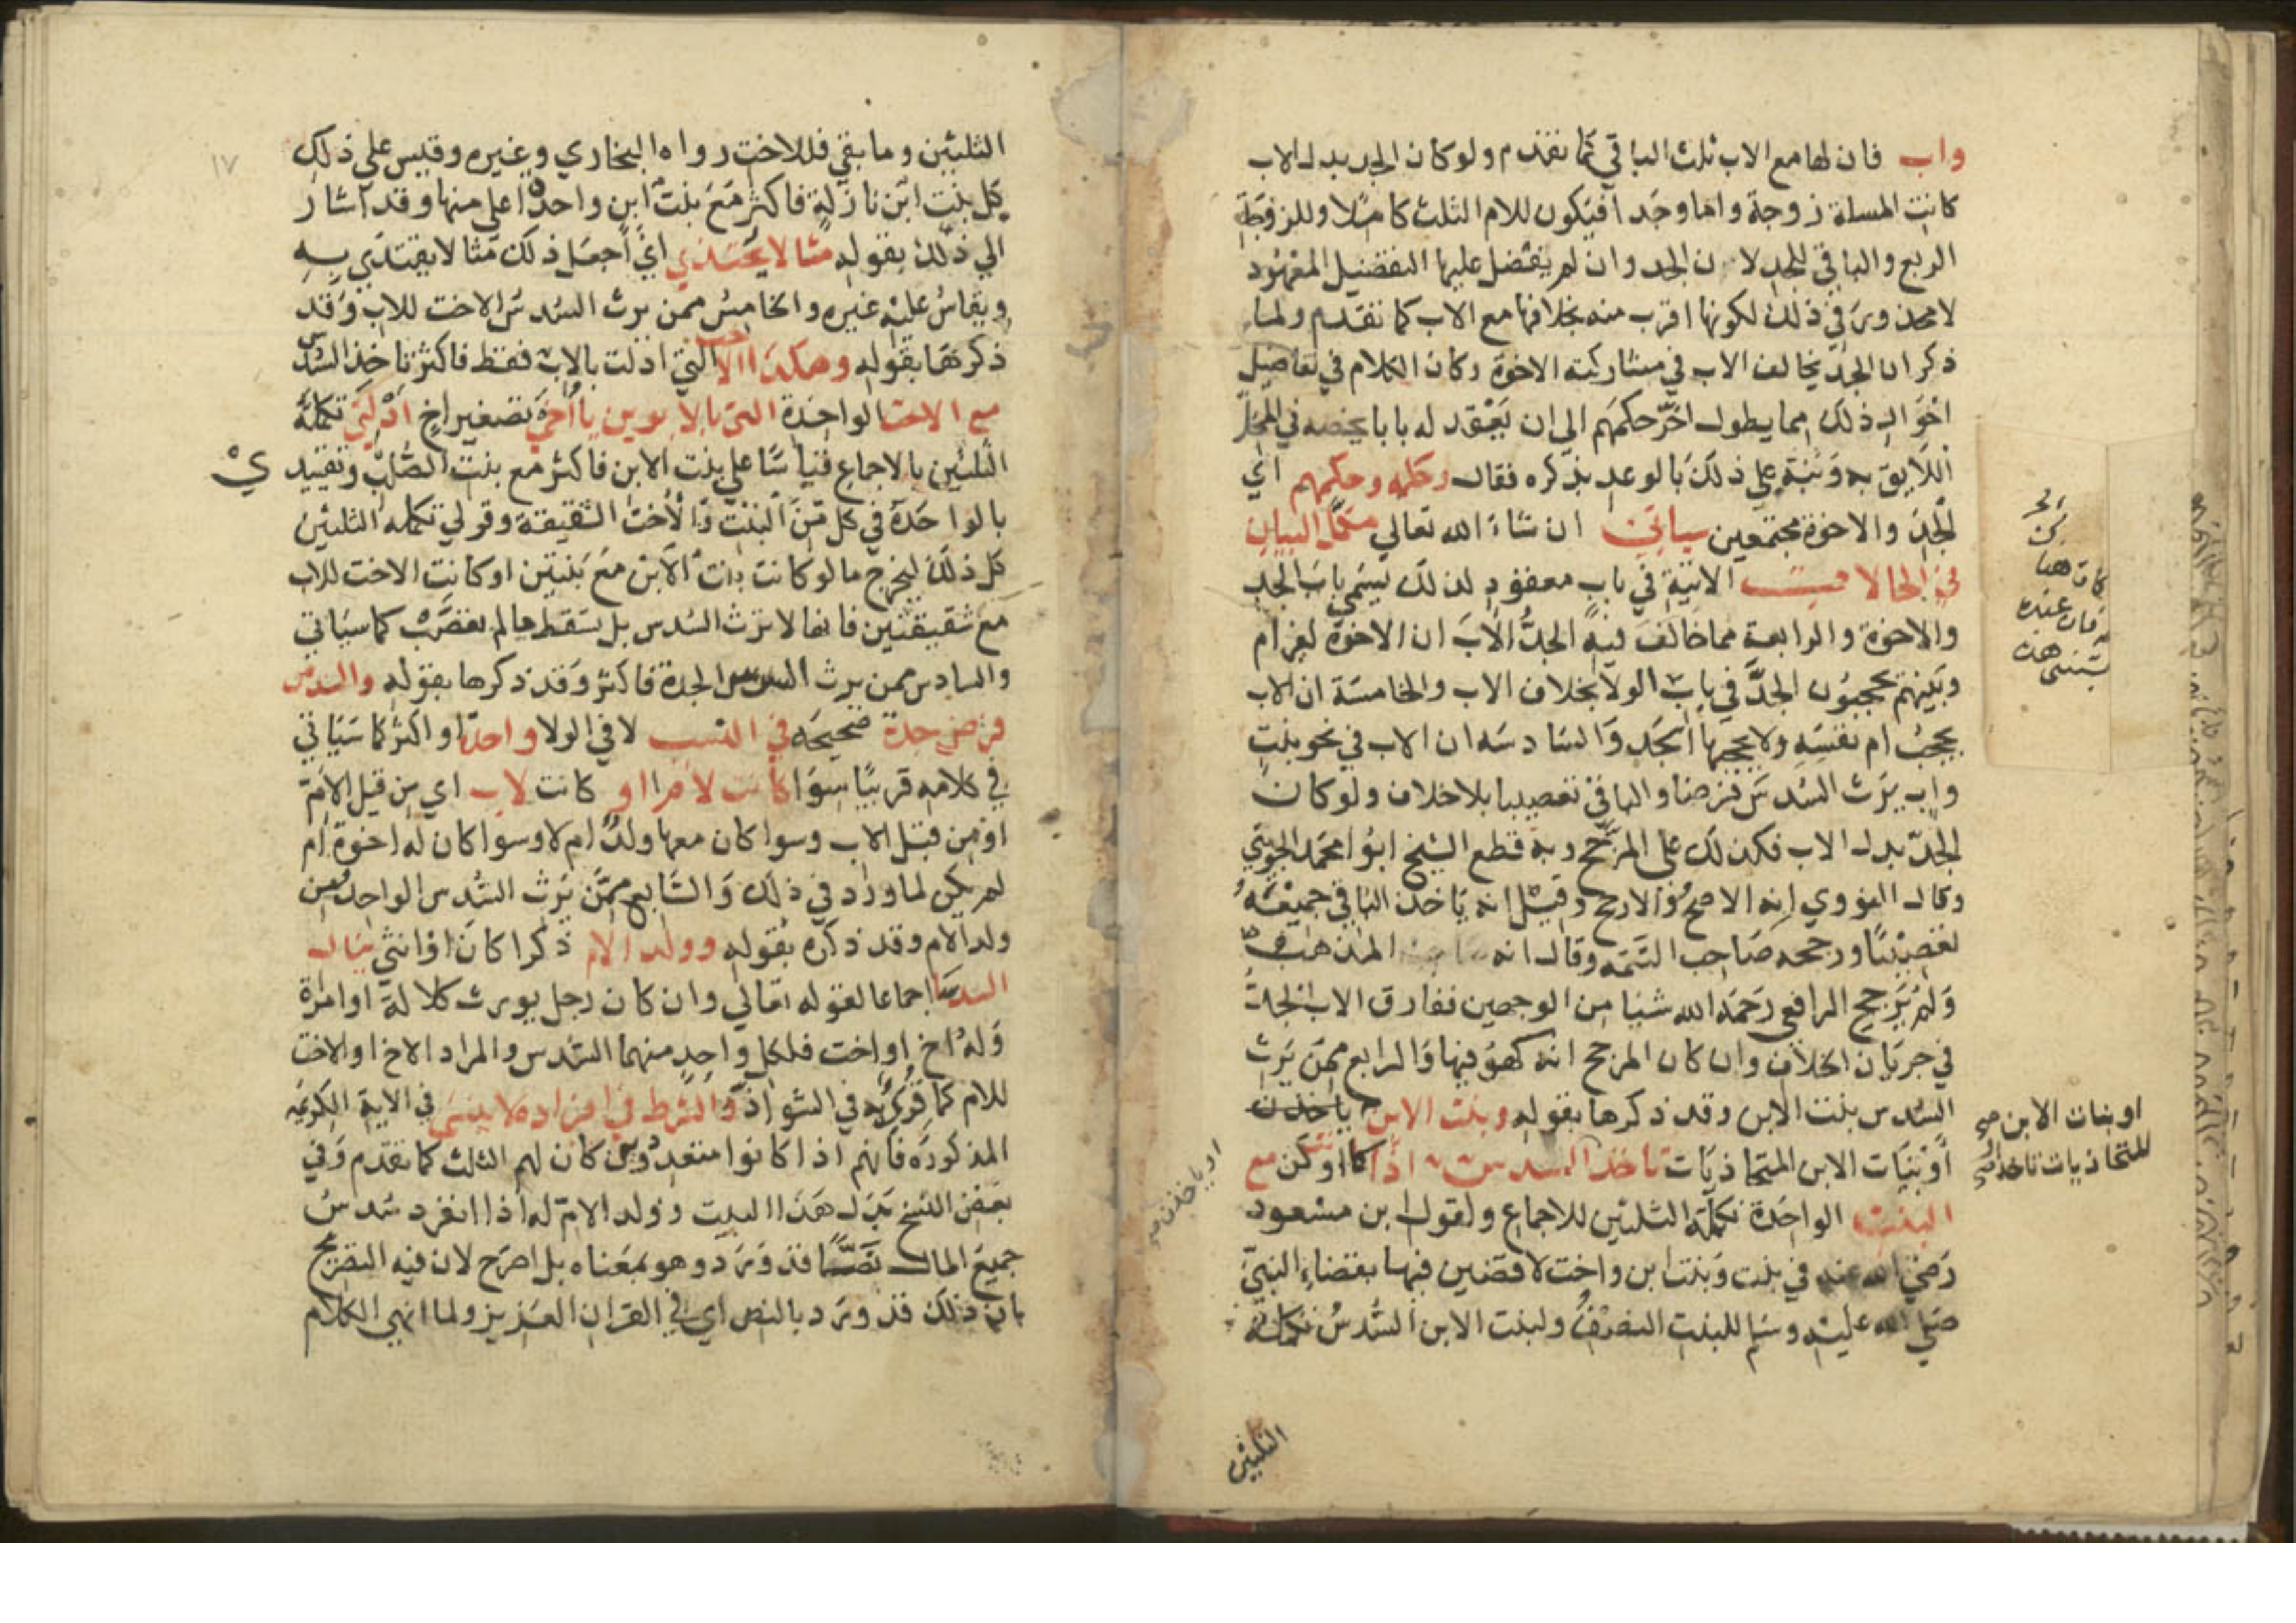 واب فان لها مع الاب ثلث الباقي كما تقدم ولو كان الجد بدل الاب
كانت المسلة زوجة واما وجدا فيكون للام الثلث كاملا وللزوجة
الربع والباقي للجد لان الجد وان لم يفضل عليها التفضيل المعهود
لا محذور في ذلك لكونها اقرب منه بخلافها مع الاب كما تقدم ولما
ذكر ان الجد يخالف الاب في مشاركته الاخوة وكان الكلام في تفاصيل
احوال ذلك مما يطول اخر حكمهم الى ان يعقد له بابا يخصه في المحل
اللايق به ونبه على ذلك بالوعد بذكره فقال وحكمه وحكمهم اي
الجد والاخوة مجتمعين سياتي ان شاء الله تعالي مكمل البيان
في الحالات الاتية في باب معقود لذلك يسمي باب الجد
والاخوة والرابعة مما خالف فيه الجد الاب ان الاخوة لغير ام
وبنيهم يحجبون الجد في باب الولا بخلاف الاب والخامسة ان الاب
يحجب ام نفسه ولا يحجبها الجد والسادسه ان الاب في نحو بنت
واب يرث السدس فرضا والباقي تعصيبا بلا خلاف ولو كان
الجد بدل الاب فكذلك على المرجح وبه قطع الشيخ ابوا محمد الجويني
وقال النووي انه الاصح والارجح وقيل انه ياخذ الباقي جميعه
تعصيبا ورجحه صاحب التتمه وقال انه المذهب
ولم يرجح الرافعي رحمه الله شيا من الوجهين ففارق الاب الجد
في جريان الخلاف وان كان المرجح انه كهو فيها والرابع ممن يرث
السدس بنت الابن وقد ذكرها بقوله وبنت الابن ياخذن
او بنيات الابن المتحاذيات تاخذ السدس اذا كن مع
البنت الواحدة تكملة الثلثين للاجماع ولقول ابن مسعود
رضي الله عنه في بنت وبنت ابن واخت لاقضين فيها بقضاء النبي
صلي الله عليه وسلم للبنت النصف ولبنت الابن السدس تكملة
الثلثين
او بنات الابن صح
المتحاذيات تاخذ
او ياخذن صح
هنا
عنده
١٧
الثلثين وما بقي فللاخت رواه البخاري وغيره وقيس على ذلك
كل بنت ابن نازلة فاكثر مع بنت ابن واحدة اعلى منها وقد اشار
الي ذلك بقوله مثالا يحتذي اي اجعل ذلك مثالا يقتدي به
ويقاس عليه غيره والخامس ممن يرث السدس الاخت للاب وقد
ذكرها بقوله وهكذا الاخت التي ادلت بالاب فقط فاكثر تاخذ السدس
مع الاخت الواحدة التي بالابوين يا أخي تصغير اخ ادلت تكملة
الثلثين بالاجماع قياسا على بنت الابن فاكثر مع بنت الصلب وتقييدي
بالواحدة في كل من البنت والأخت الشقيقة وقولي تكملة الثلثين
كل ذلك ليخرج ما لو كانت بنت الابن مع بنتين او كانت الاخت للاب
مع شقيقتين فانها لا ترث السدس بل تسقط ما لم تعصب كما سياتي
والسادس ممن يرث السدس الجدة فاكثر وقد ذكرها بقوله والسدس
فرض جدة صحيحه في النسب لا في الولا واحدة او اكثر كما سياتي
في كلامه قريبا سوا كانت لام او كانت لاب اي من قبل الام
او من قبل الاب وسوا كان معها ولد ام لا وسوا كان له اخوة ام
لم يكن لما ورد في ذلك والسابع ممن يرث السدس الواحد من
ولد الام وقد ذكره بقوله وولد الام ذكرا كان او انثي ينال
السدس اجماعا لقوله تعالي وان كان رجل يورث كلالة او امراة
وله اخ او اخت فلكل واحد منهما السدس والمراد الاخ او الاخت
للام كما قرئ به في الشواذ والشرط في افراده لا ينسى في الاية الكريمه
المذكوره فانهم اذا كانوا متعددين كان لهم الثلث كما تقدم وفي
بعض النسخ بدل هذا البيت وولد الام له اذا انفرد سدس
جميع المال نصا قد ورد وهو بمعناه بل اصرح لان فيه التصريح
بان ذلك قد ورد بالنص اي في القران العزيز ولما انهي الكلام